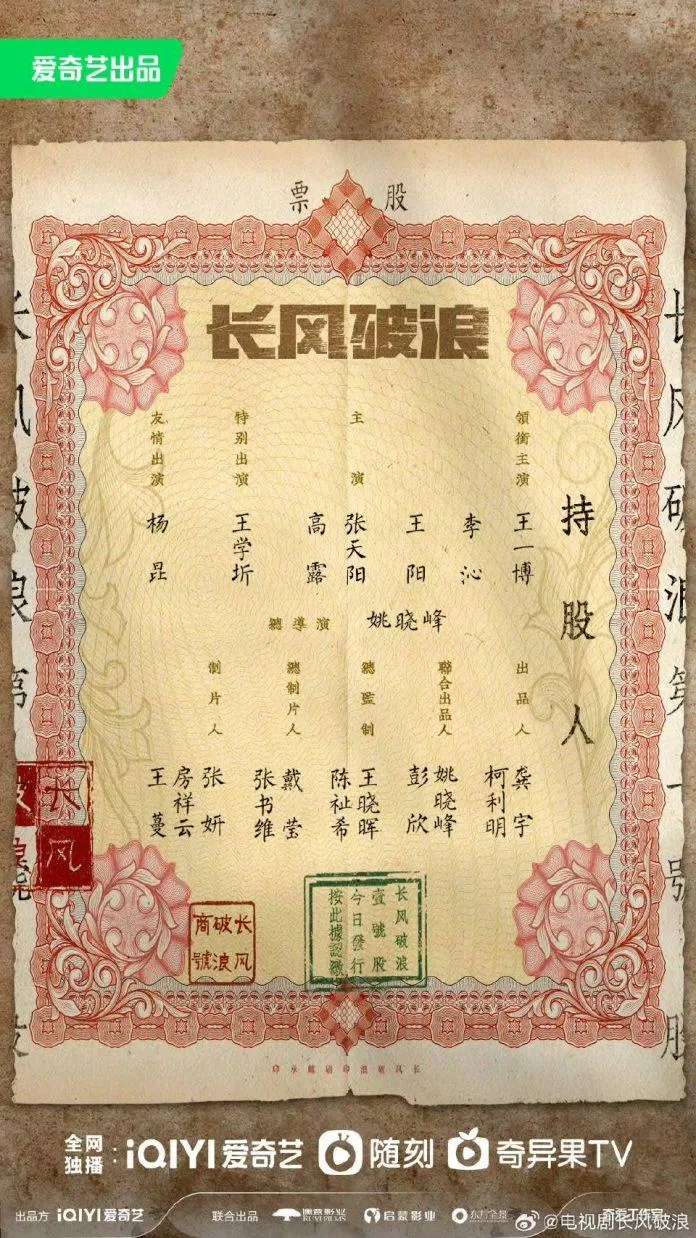 爱奇艺出品
股票
长风破浪
持股人
領銜主演
王一博
李沁
主演
王阳
张天阳
高露
特别出演
王学圻
友情出演
杨昆
總導演
姚晓峰
出品人
龚宇
柯利明
聯合出品人
姚晓峰
彭欣
總監制
王晓晖
陈祉希
總制片人
戴莹
张书维
制片人
张妍
房祥云
王蔓
长风破浪第一號股
长风破浪第
长风
长风破浪商號
长风破浪
壹號股
今日發行
按此據認繳
全网独播：iQIYI爱奇艺 随刻 奇异果TV
出品方 iQIYI爱奇艺 联合出品 儒意影业 RUYI FILMS 启蒙影业 东方全景 奇爱工作室
@电视剧长风破浪